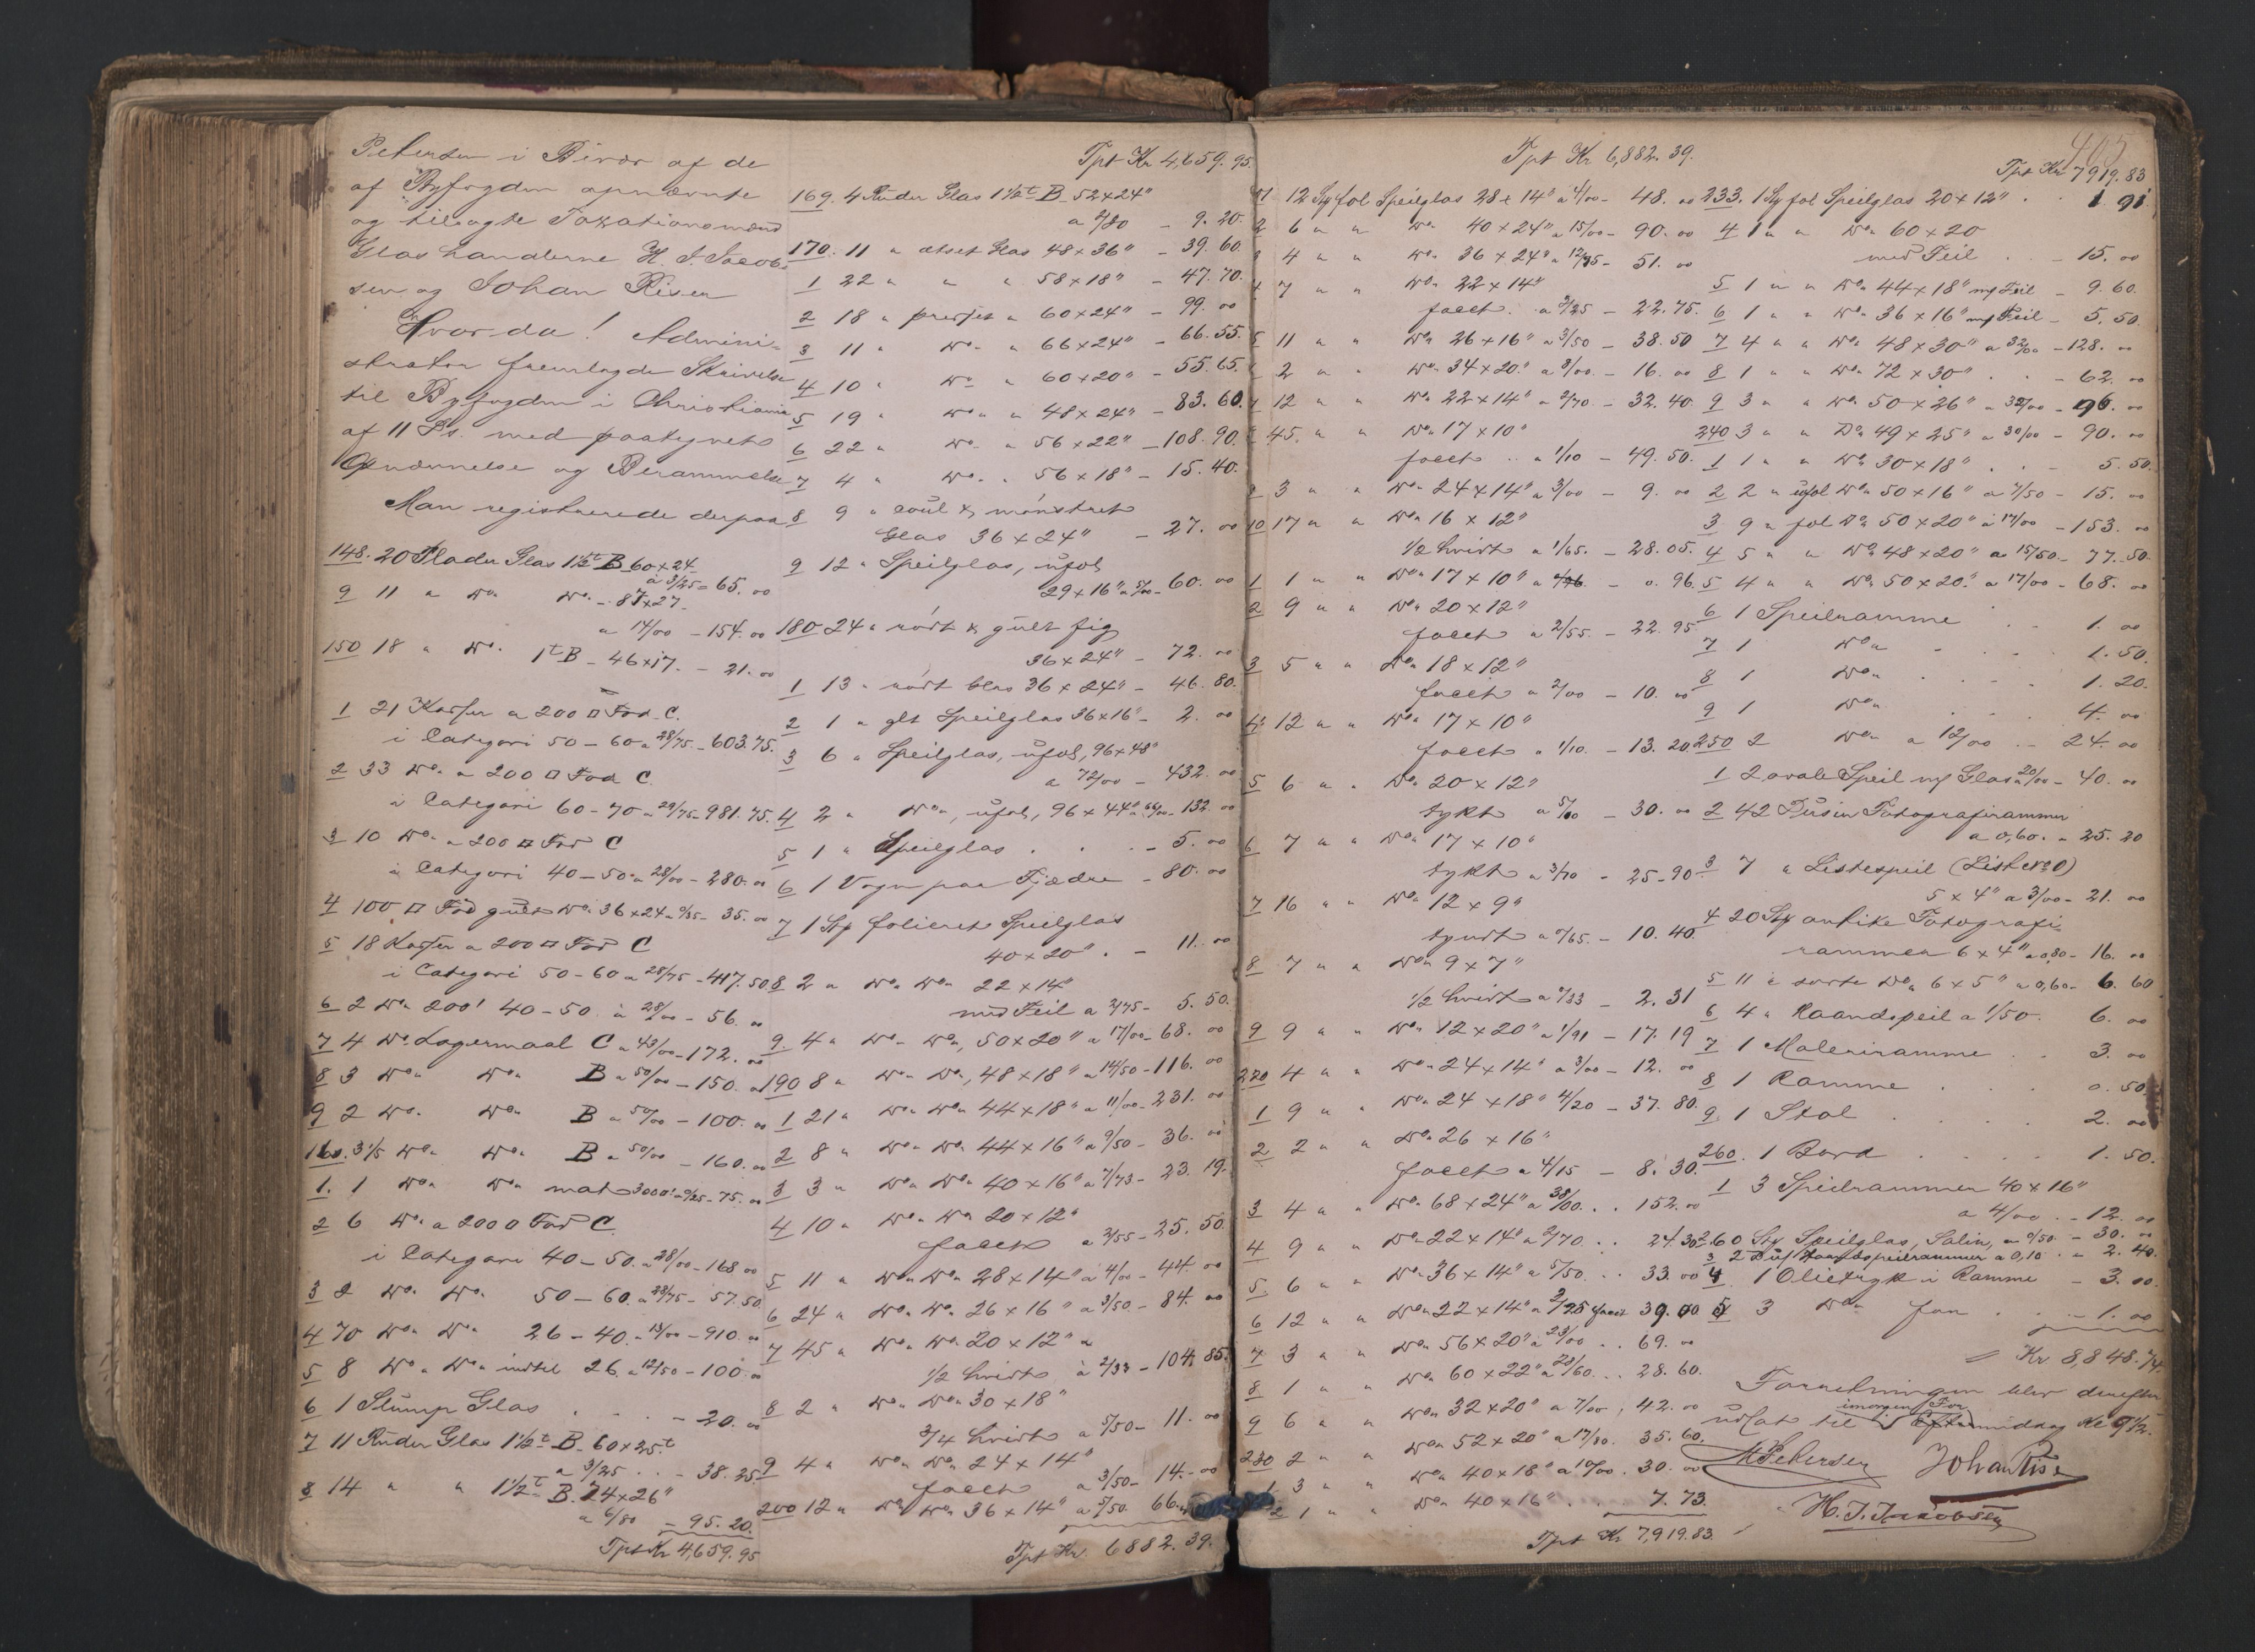 Petersen i Bivær af de
af Byfogden opnævnte
og tilsagte Taxationsmænd
Glashandlerne H. J. Jacob-
sen og Johan Riser
Hvorda! Admini-
strator fremlagde Skrivelse
til Byfogden i Christiania
af 11 Ds. med paategnet
Opnævnelse og Berammelse
Man registrerede derpaa
148. 20 Plader Glas 1½t B 60x24
a 3/25 = 65. 00
9 11 " Do. Do. - 87x27
a 14/00 - 154. 00
150 18 " Do. 1t B - 46x17. - 21. 00
1 21 Kasser a 200 □ Fod C.
i Categori 50-60 a 28/75 - 603.75.
2 33 Do. a 200 □ Fod C.
i Categori 60-70 a 29/75 - 981.75.
3 10 Do. a 200 □ Fod C
i Categori 40-50 a 28/00 - 280. 00
4 100 □ Fod gult Do. 36x24 a 0/35 - 35. 00
5 18 Kasser a 200 □ Fod C
i Categori 50-60 a 28/75 - 417.50
6 2 Do. 200' 40-50 à 28/00 - 56. 00
7 4 Do. Lagermaal C a 43/00 - 172. 00
8 3 Do. Do. B a 50/00 - 150. 00
9 2 Do. Do. B a 50/00 - 100. 00
160. 3 1/5 Do. Do. B a 50/00 - 160. 00
1. 1 Do. Do. mat 3000' a 0/25 - 75. 00
2 6 Do. a 200 □ Fod C.
i Categori 40-50. a 28/00 - 168 00
3 2 Do. Do. 50-60. a 28/75 - 57.50.
4 70 Do. Do. 26-40. a 13/00 - 910. 00
5 8 Do. Do. indtil 26. a 12/50 - 100. 00
6 1 Slump Glas . . - 20. 00
7 11 Ruder Glas 1½t B. 60x25.
a 3/25 . . - 38.25
8 14 " " 1½t B. 74x26"
a 6/80 - 95.20.
Tpt Kr 4,659.95
Tpt Kr 4,659.95.
169. 4 Ruder Glas 1½t B. 52x24"
a 2/80 - 9.20.
170. 11 " ætset Glas 48x36" - 39.60.
1 22 " " " 58x18" - 47.70.
2 18 " presset " 60x24" - 99. 00
3 11 " Do. " 66x24" - 66.55.
4 10 " Do. " 60x20" - 55.65.
5 19 " Do. " 48x24" - 83.60.
6 22 " Do. " 56x22" - 108.90.
7 4 " Do. " 56x18" - 15.40.
8 9 " coul & mønstret
Glas 36x24" - 27. 00
9 12 " Speilglas, ufol
29x16" a 5/00 - 60. 00
180 24 " rødt & gult fig
36x24" - 72. 00
1 13 " rødt blaa 36x24" - 46.80.
2 1 " glt Speilglas 36x16" - 2. 00
3 6 " Speilglas, ufol, 96x48"
a 72/00 - 432. 00
4 2 " Do., ufol, 96x44" a 66/00 - 132. 00
5 1 " Speilglas . . . - 5. 00
6 1 Vogn paa Fjædre - 80. 00
7 1 Stp folieret Speilglas
40x20" . - 11. 00
8 2 " Do. Do. 22x14"
med Feil a 2/75 - 5.50.
9. 4 " Do. Do., 50x20" a 17/00 - 68. 00
190 8 " Do. Do., 48x18" a 14/50 - 116. 00
1 21 " Do. Do. 44x18" a 11/00 - 231. 00
2 8 " Do. Do. 44x16" a 9/50 - 36. 00
3 3 " Do. Do. 40x16" a 7/73 - 23.19.
4 10 " Do. Do. 20x12"
facet a 2/55 - 25.50.
5 11 " Do. Do. 28x14" a 4/00 - 44. 00
6 24 " Do. Do. 26x16" a 3/50. - 84. 00
7 45 " Do. Do. 20x12"
1/2 hvidt à 2/33 - 104.85.
8 2 " Do. Do. 30x18"
3/4 hvidt a 5/50 - 11. 00
9 4 " Do. Do. 24x14"
facet a 3/50 - 14. - 00
200 12 " Do. Do. 36x14" a 5/50. 66.
Tpt Kr. 6882.39.
Tpt Kr 6,882.39.
1 12 Stp fol Speilglas 28x14" a 4/00 - 48. 00
2 6 " " Do. 40x24" a 15/00 - 90. 00
3 4 " " Do. 36x24" a 12/75 - 51. 00
4 7 " " Do. 22x14"
facet. a 3/25 - 22.75.
5 11 " " Do. 26x16" a 3/50 - 38.50
2 " " Do. 34x20" a 8/00. - 16. 00
12 " " Do. 22x14" a 2/70 - 32.40.
45. " " Do. 17x10"
facet .. a 1/10 - 49.50.
3 " " Do. 24x14" a 3/00 - 9. 00
10 17 " " Do. 16x12"
1/2 hvidt a 1/65. - 28.05.
1 1 " " Do. 17x10" a 0/96 - 0.96
2 9 " " Do. 20x12"
facet a 2/55. - 22.95
3 5 " " Do. 18x12"
facet a 2/00 - 10. 00
4 12 " " Do. 17x10"
facet a 1/10. - 13.20
5 6 " " Do. 20x12"
tykt a 5/00 - 30. 00
6 7 " " Do. 17x10"
tykt a 3/70 - 25.90
7 16 " " Do. 12x9"
tyndt a 0/65. - 10.40.
8 7 " " Do. 9x7"
1/2 hvidt a 0/33 - 2.31
9 9 " " Do. 12x20" a 1/91 - 17.19
220 4 " " Do. 24x14" a 3/00 - 12. 00
1 9 " " Do. 24x18" 4/20 - 37.80.
2 2 " " Do. 26x16"
facet a 4/15 - 8.30.
3 4 " " Do. 68x24" a 38/00. . . 152. 00
4 9 " " Do. 22x14" a 2/70 . . 24.30
5. 6 " " Do. 36x14" a 5/50. . . 33. 00
6 12 " " Do. 22x14" a 3/25 facet 39. 00
7 3 " " Do. 56x20" a 23/00 . . 69. 00
8 1 " " Do. 60x22" a 28/60. . . 28.60.
9 6 " " Do. 32x20" a 7/00, 42. 00
230 2 " " Do. 52x20" a 17/80. 35.60.
1 3 " " Do. 40x18" a 10/00. 30. 00
2 1 " " Do. 40x16" . . 7.73.
Tpt Kr 7,919.83.
465
Tpt Kr 7919.83
233. 1 Stp fol Speilglas 20x12" . . 1.91.
4 1 " " Do. 60x20
med Feil . - 15. 00
5 1 " " Do. 44x18" m/ Feil - 9.60.
6 1 " " Do. 36x16" m/ Feil - 5.50
7 4 " " Do. 48x30" a 32/00 - 128. 00
8 1 " " Do. 72x30" . . - 62. 00
9 3 " " Do. 50x26" a 32/00 - 96. 00
240 3 " " Do. 49x25" a 30/00 - 90. 00
1 1 " " Do. 30x18" . . - 5.50.
2 2 " ufol Do. 50x16" a 7/50 - 15. 00
3 9 " fol Do. 50x20" à 17/00 - 153. 00
4 5 " " Do. 48x20" a 15/50 - 77.50.
5 4 " " Do. 50x20." a 17/00 - 68. 00
6 1 Speilramme . . 1. 00
7 1 Do. . . . 1.50.
8 1 Do. . . . . 1.20.
9 1 Do. . . . 4. 00
250 2 Do. a 12/00 . - 24. 00
1 2 ovale Speil m/ Glas a 20/00 - 40. 00
2 42 Dusin Fotografirammer
a 0,60. - 25.20
3 7 " Listespeil (Listver0)
5x4" a 3/00 - 21. 00
4 20 Stp antike Fotografi-
rammer 6x4" a 0,80 - 16. 00
5 11 " sorte Do. 6x5" a 0,60 - 6.60
6 4 " Raandspeil a 1/50. 6. 00
7 1 Maleriramme . . 3. 00
8 1 Ramme . . . 0.50.
9. 1 Stol . . . . 2. 00
260. 1 Bord . . . . 1.50.
1 3 Speilrammer 40x16"
a 4/00 . - 12. 00
2. 60 Stp Speilglas, Salin, a 0/50 - 30. 00
3 2 Dus Haandspeilrammer a 0,10 . - 2.40.
4 1 Olietryk i Ramme - 3. 00.
5 3 Do. for . . - 1. 00
Kr 8,848.74.
Forretningen blev derefter
imorgen For
udsat til Eftermiddag Kl 9½.
M Petersen Johan Riser
H. J. Jacobsen